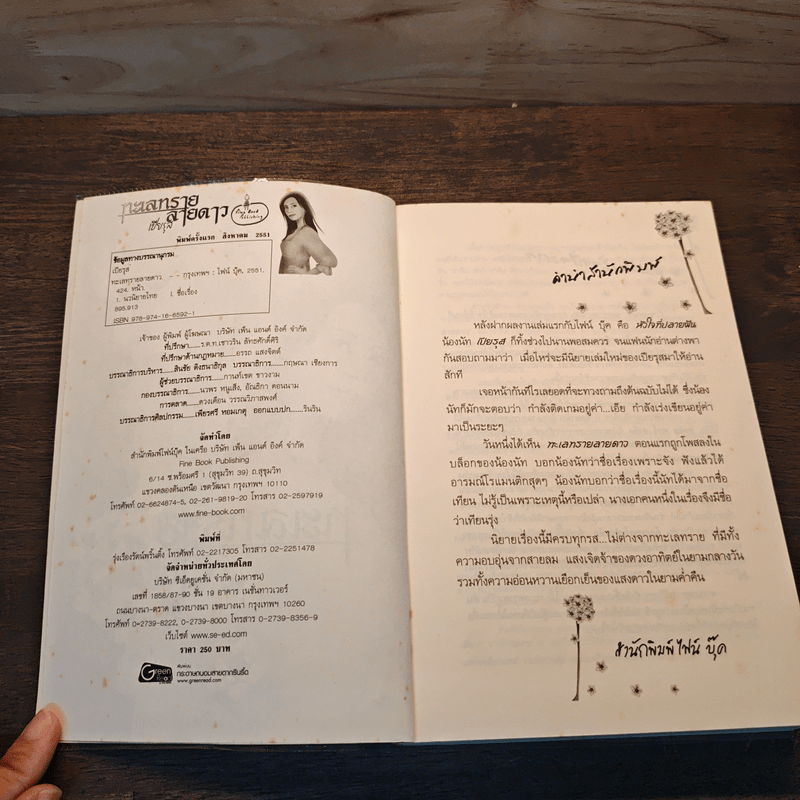 ทะเลทราย
ลายดาว
เปียรุส
Fine Book
Publishing
พิมพ์ครั้งแรก สิงหาคม 2551
ข้อมูลทางบรรณานุกรม
เปียรุส
ทะเลทรายลายดาว. - - กรุงเทพฯ : ไฟน์ บุ๊ค, 2551.
424. หน้า.
1. นวนิยายไทย I. ชื่อเรื่อง
895.913
ISBN 978-974-16-6592-1
เจ้าของ ผู้พิมพ์ ผู้โฆษณา บริษัท เพ็น แอนด์ อิงค์ จำกัด
ที่ปรึกษา......ร.ต.ท.เชาวริน ลัทธศักดิ์ศิริ
ที่ปรึกษาด้านกฎหมาย......อรรถ แสงจิตต์
บรรณาธิการบริหาร......สินชัย ดิ่งธนาธิกุล บรรณาธิการ......กฤษณา เชียงการ
ผู้ช่วยบรรณาธิการ......กานท์เขต ชาวงาม
กองบรรณาธิการ......นวพร หนูเส็ง, อัณธิกา ดอนนาม
การตลาด......ดวงเดือน วรรณวิภาสพงศ์
บรรณาธิการศิลปกรรม......เพียรศรี ทอมเกตุ ออกแบบปก......รินริน
จัดทำโดย
สำนักพิมพ์ไฟน์บุ๊ค ในเครือ บริษัท เพ็น แอนด์ อิงค์ จำกัด
Fine Book Publishing
6/14 ซ.พร้อมศรี 1 (สุขุมวิท 39) ถ.สุขุมวิท
แขวงคลองตันเหนือ เขตวัฒนา กรุงเทพฯ 10110
โทรศัพท์ 02-6624874-5, 02-261-9819-20 โทรสาร 02-2597919
www.fine-book.com
พิมพ์ที่
รุ่งเรืองรัตน์พริ้นติ้ง โทรศัพท์ 02-2217305 โทรสาร 02-2251478
จัดจำหน่ายทั่วประเทศโดย
บริษัท ซีเอ็ดยูเคชั่น จำกัด (มหาชน)
เลขที่ 1858/87-90 ชั้น 19 อาคาร เนชั่นทาวเวอร์
ถนนบางนา-ตราด แขวงบางนา เขตบางนา กรุงเทพฯ 10260
โทรศัพท์ 0-2739-8222, 0-2739-8000 โทรสาร 0-2739-8356-9
เว็บไซต์ www.se-ed.com
ราคา 250 บาท
Green
Read
พิมพ์บน
กระดาษถนอมสายตากรีนรี้ด
www.greenread.com
คำนำสำนักพิมพ์
หลังฝากผลงานเล่มแรกกับไฟน์ บุ๊ค คือ หัวใจที่ปลายฝัน
น้องนัท เปียรุส ก็ทิ้งช่วงไปนานพอสมควร จนแฟนนักอ่านต่างพา
กันสอบถามมาว่า เมื่อไหร่จะมีนิยายเล่มใหม่ของเปียรุสมาให้อ่าน
สักที
เจอหน้ากันทีไรเลยอดที่จะทวงถามถึงต้นฉบับไม่ได้ ซึ่งน้อง
นัทก็มักจะตอบว่า กำลังติดเกมอยู่ค่า...เอ๊ย กำลังเร่งเขียนอยู่ค่า
มาเป็นระยะๆ
วันหนึ่งได้เห็น ทะเลทรายลายดาว ตอนแรกถูกโพสลงใน
บล็อกของน้องนัท บอกน้องนัทว่าชื่อเรื่องเพราะจัง ฟังแล้วได้
อารมณ์โรแมนติกสุดๆ น้องนัทบอกว่าชื่อเรื่องนี้นัทได้มาจากชื่อ
เทียน ไม่รู้เป็นเพราะเหตุนี้หรือเปล่า นางเอกคนหนึ่งในเรื่องจึงมีชื่อ
ว่าเทียนรุ่ง
นิยายเรื่องนี้มีครบทุกรส...ไม่ต่างจากทะเลทราย ที่มีทั้ง
ความอบอุ่นจากสายลม แสงเจิดจ้าของดวงอาทิตย์ในยามกลางวัน
รวมทั้งความอ่อนหวานเยือกเย็นของแสงดาวในยามค่ำคืน
สำนักพิมพ์ ไฟน์ บุ๊ค